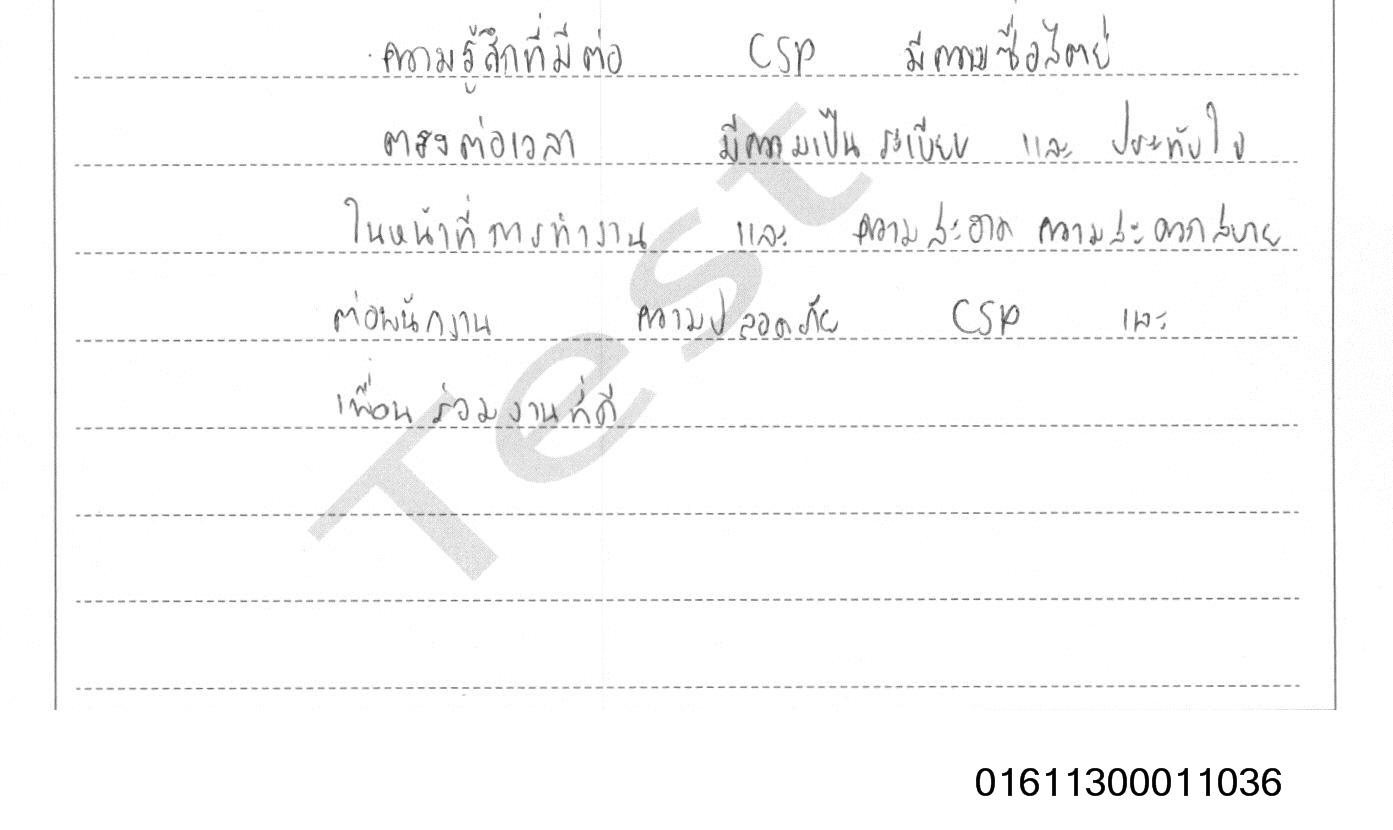 ความรู้สึกที่มีต่อ CSP มีความซื่อสัตย์
ตรงต่อเวลา มีความเป็นระเบียบ และ ประทับใจ
ในหน้าที่การทำงาน และ ความสะอาด ความสะดวกสบาย
ต่อพนักงาน ความปลอดภัย CSP และ
เพื่อนร่วมงานที่ดี
Test
01611300011036